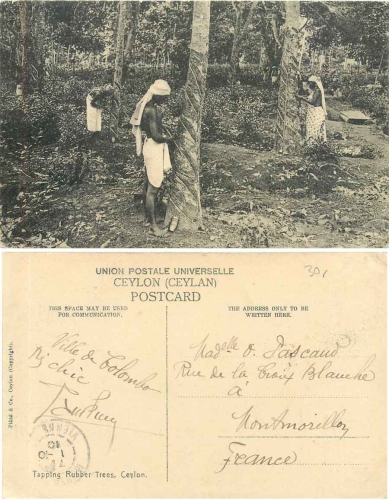 UNION POSTALE UNIVERSELLE
CEYLON (CEYLAN)
POSTCARD
THIS SPACE MAY BE USED
FOR COMMUNICATION.
THE ADDRESS ONLY TO BE
WRITTEN HERE.
Ville de Colombo
chic
Madelle O. Pascaud
Rue de la Croix Blanche
à
Montmorillon
France
VIENNE
10
Plâté & Co., Ceylon (Copyright).
Tapping Rubber Trees, Ceylon.